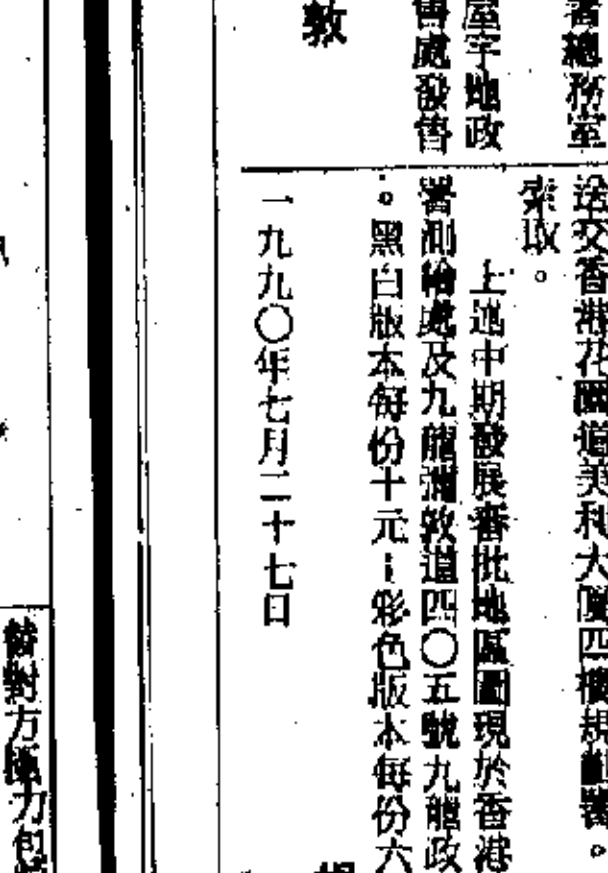 署總務室
屋宇地政
售處發售
敦
送交香港花園道美利大廈四樓規劃署。
索取。
上述中期發展審批地區圖現於香港
署測繪處及九龍彌敦道四〇五號九龍政
。黑白版本每份十元;彩色版本每份六
一九九〇年七月二十七日
對方極力包